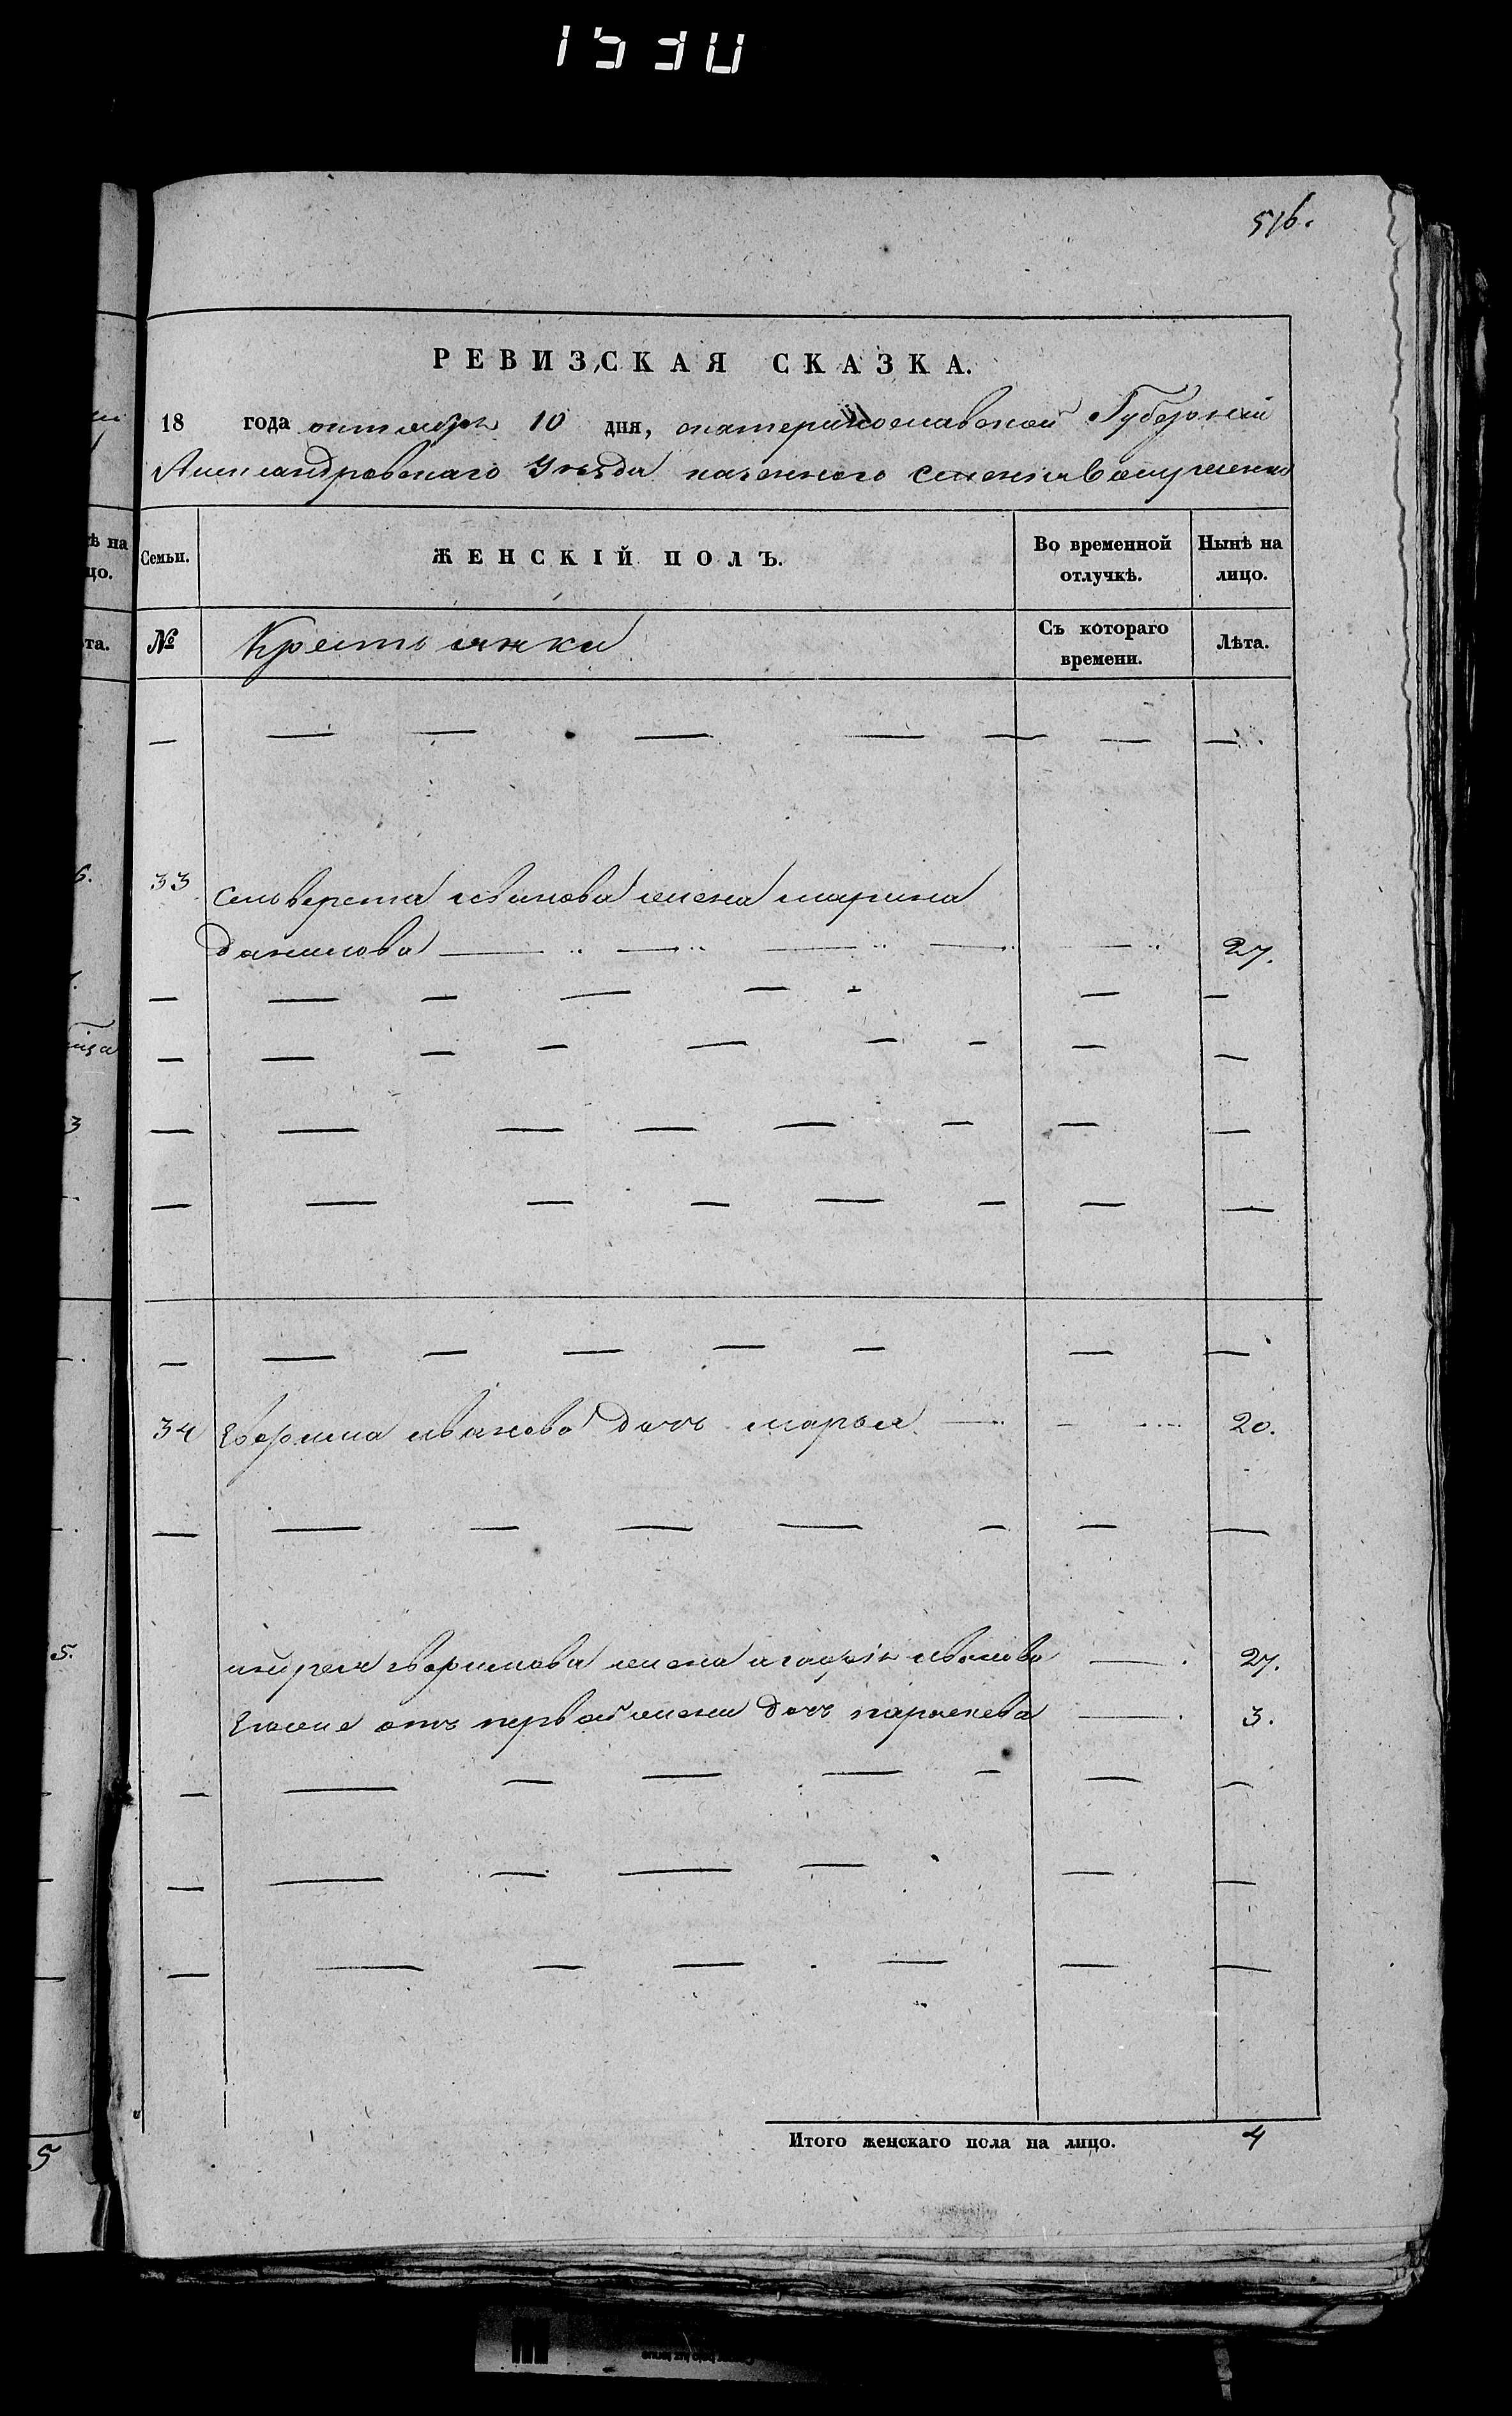 1530
516.
РЕВИЗСКАЯ СКАЗКА.
18 года октября 10 дня, екатеринославской Губернии
Александровскаго Уезда казенного селения
Семьи. ЖЕНСКІЙ ПОЛЪ. Во временной отлучкѣ. Нынѣ на лицо.
№ Крестьянки Съ котораго времени. Лѣта.
33 Сельверста иванова жена марина
данилова 27.
34 иванова дочь марья 20.
андрея жена агафія иванова 27.
Егоже отъ первой жены дочь парасковья 3.
Итого женскаго пола на лицо. 4